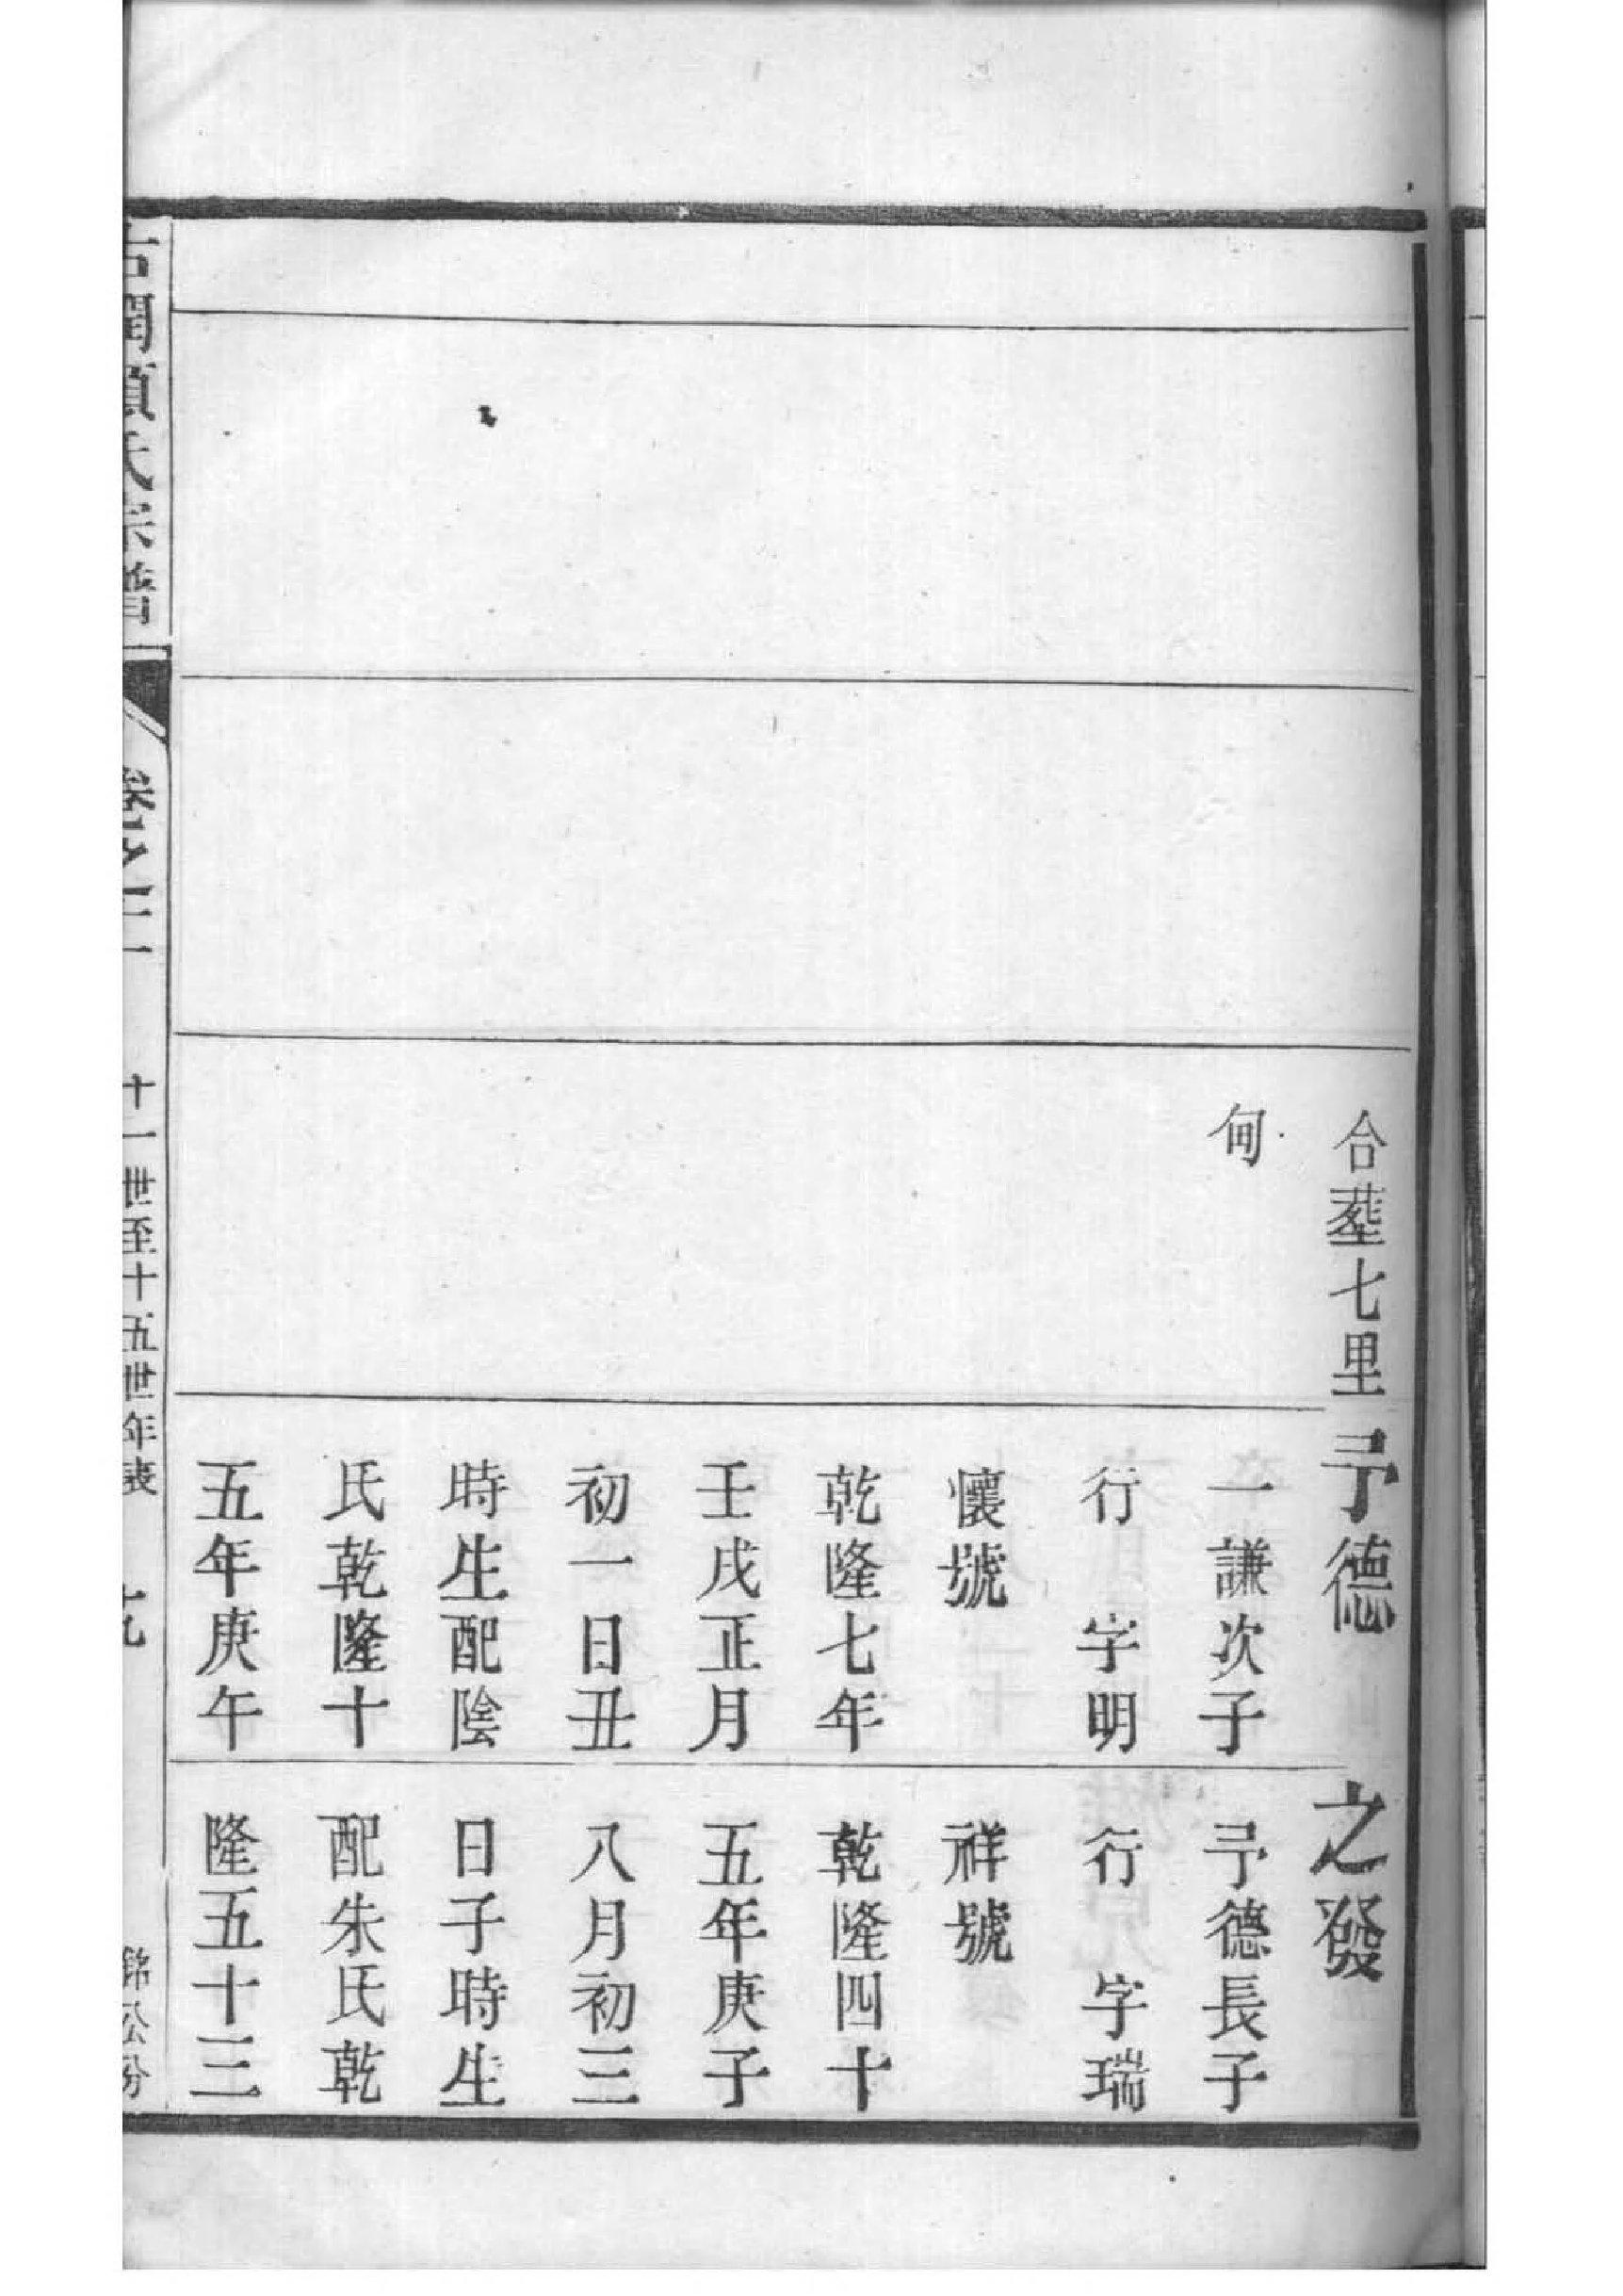 合塟七里
甸
予德
一謙次子
行　字明
懷號
乾隆七年
壬戌正月
初一日丑
時生配陰
氏乾隆十
五年庚午
之發
予德長子
行　字瑞
祥號
乾隆四十
五年庚子
八月初三
日子時生
配朱氏乾
隆五十三
氏宗譜
卷之二
十一世至十五世年表
九
銘公分